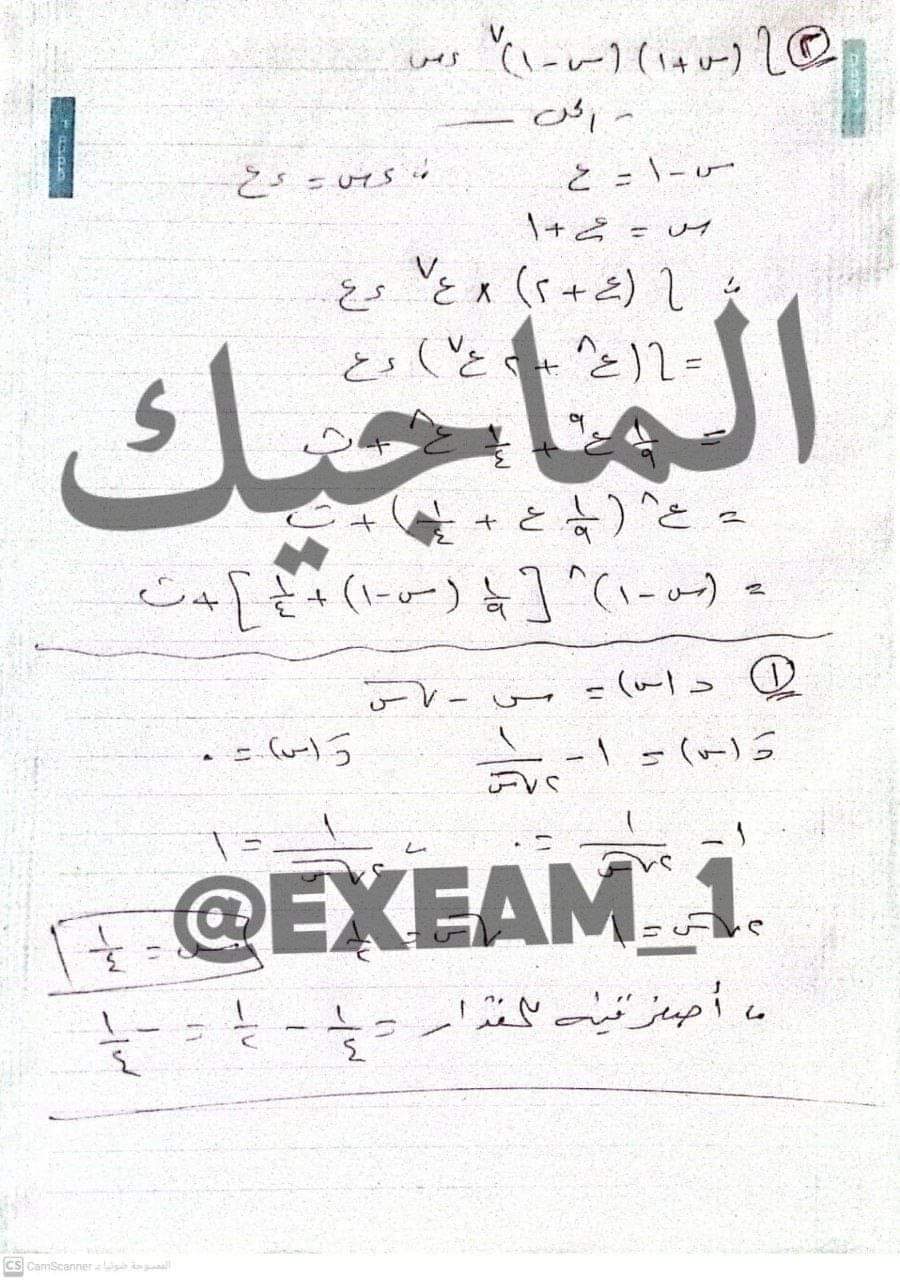 ٣ ∫ (س + ١) (س - ١)^٧ ءس
الحل
س - ١ = ع ∴ ءس = ءع
س = ع + ١
∴ ∫ (ع + ٢) × ع^٧ ءع
= ∫ (ع^٨ + ٢ ع^٧) ءع
= ١/٩ ع^٩ + ١/٤ ع^٨ + ث
= ع^٨ (١/٩ ع + ١/٤) + ث
= (س - ١)^٨ [١/٩ (س - ١) + ١/٤] + ث
الماجيك
١ د(س) = س - √س
دَ(س) = ١ - ١/٢√س دَ(س) = ٠
١ - ١/٢√س = ٠ ∴ ١/٢√س = ١
٢√س = ١ √س = ١/٢ س = ١/٤
@EXEAM_1
∴ أصغر قيمة للمقدار = ١/٤ - ١/٢ = -١/٤
CS CamScanner الممسوحة ضوئيا بـ